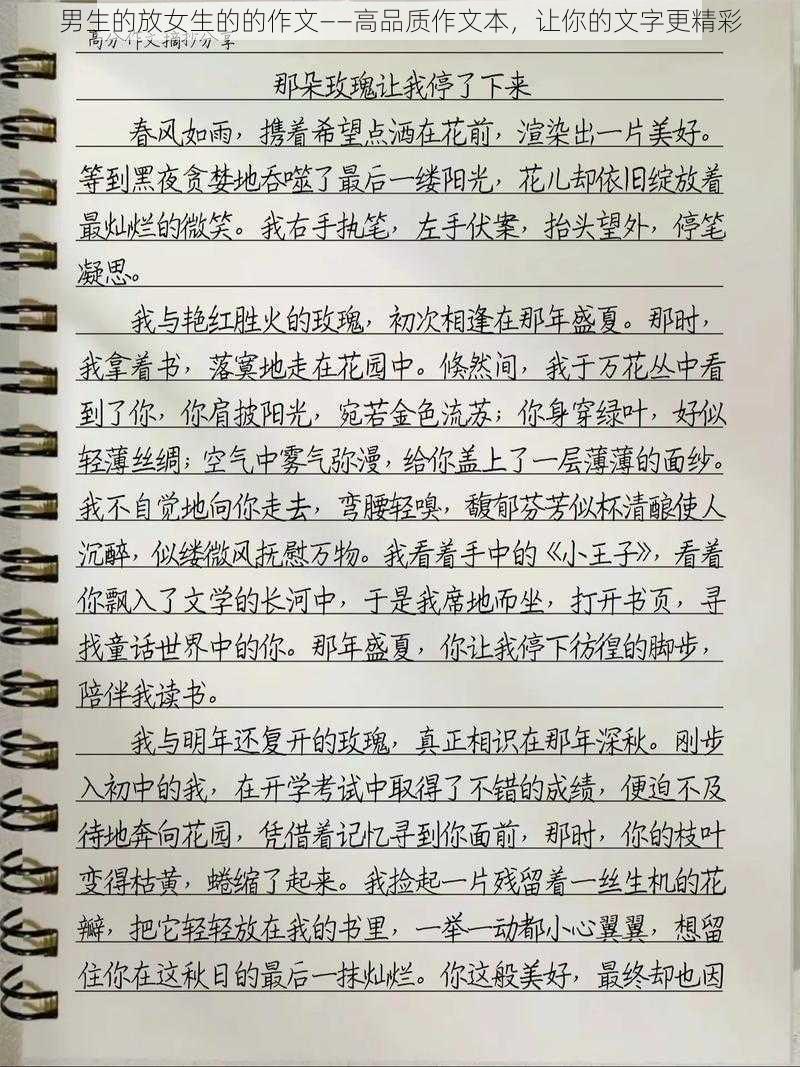 男生的放女生的的作文——高品质作文本，让你的文字更精彩
高分作文摘抄分享
那朵玫瑰让我停了下来
春风如雨，携着希望点洒在花前，渲染出一片美好。
等到黑夜贪婪地吞噬了最后一缕阳光，花儿却依旧绽放着
最灿烂的微笑。我右手执笔，左手伏案，抬头望外，停笔
凝思。
我与艳红胜火的玫瑰，初次相逢在那年盛夏。那时，
我拿着书，落寞地走在花园中。倏然间，我于万花丛中看
到了你，你肩披阳光，宛若金色流苏；你身穿绿叶，好似
轻薄丝绸；空气中雾气弥漫，给你盖上了一层薄薄的面纱。
我不自觉地向你走去，弯腰轻嗅，馥郁芬芳似杯清酿使人
沉醉，似缕微风抚慰万物。我看着手中的《小王子》，看着
你飘入了文学的长河中，于是我席地而坐，打开书页，寻
找童话世界中的你。那年盛夏，你让我停下彷徨的脚步，
陪伴我读书。
我与明年还复开的玫瑰，真正相识在那年深秋。刚步
入初中的我，在开学考试中取得了不错的成绩，便迫不及
待地奔向花园，凭借着记忆寻到你面前，那时，你的枝叶
变得枯黄，蜷缩了起来。我捡起一片残留着一丝生机的花
瓣，把它轻轻放在我的书里，一举一动都小心翼翼，想留
住你在这秋日的最后一抹灿烂。你这般美好，最终却也因